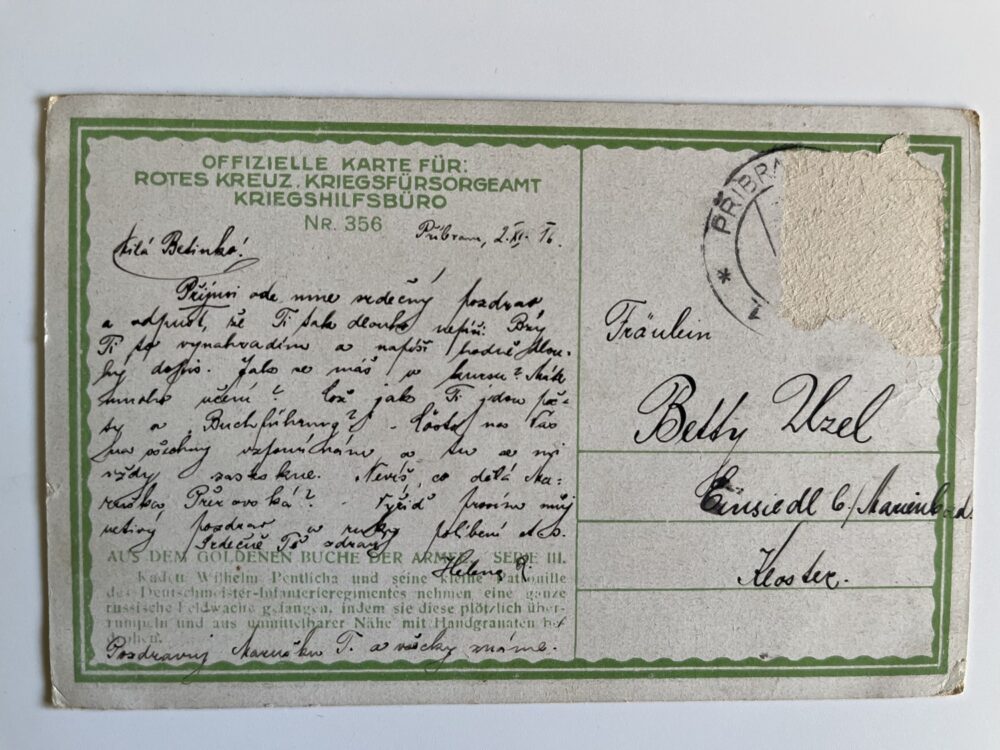 OFFIZIELLE KARTE FÜR:
ROTES KREUZ, KRIEGSFÜRSORGEAMT
KRIEGSHILFSBÜRO
NR. 356
Příbram, 2. XI. 16.
Milá Betinko!
Přijmi ode mne srdečný pozdrav
a odpusť, že Ti tak dlouho nepíši. Brzy
Ti to vynahradím a napíši hodně dlou-
hý dopis. Jako se máš v kursu? Máte
mnoho učení? Což jak Ti jdou poč-
ty a Buchführung? - Často na Vás
na všechny vzpomínám a
vždy zasteskne. Nevíš, co dělá Ma-
ruška Přerovská? - Vyřiď prosím můj
uctivý pozdrav a ruky políbení
Srdečně Tě zdraví
Helena R.
AUS DEM GOLDENEN BUCHE DER ARMEE, SERIE III.
Kadett Wilhelm Pentlicha und seine kleine Patrouille
des Deutschmeister-Infanterieregimentes nehmen eine ganze
russische Feldwache gefangen, indem sie diese plötzlich über-
rumpeln und aus unmittelbarer Nähe mit Handgranaten be-
drohen.
Pozdravuj Marušku T. a všecky známé.
PŘIBRA
Fräulein
Betty Uzel
Einsiedl b/Marienbad.
Kloster.